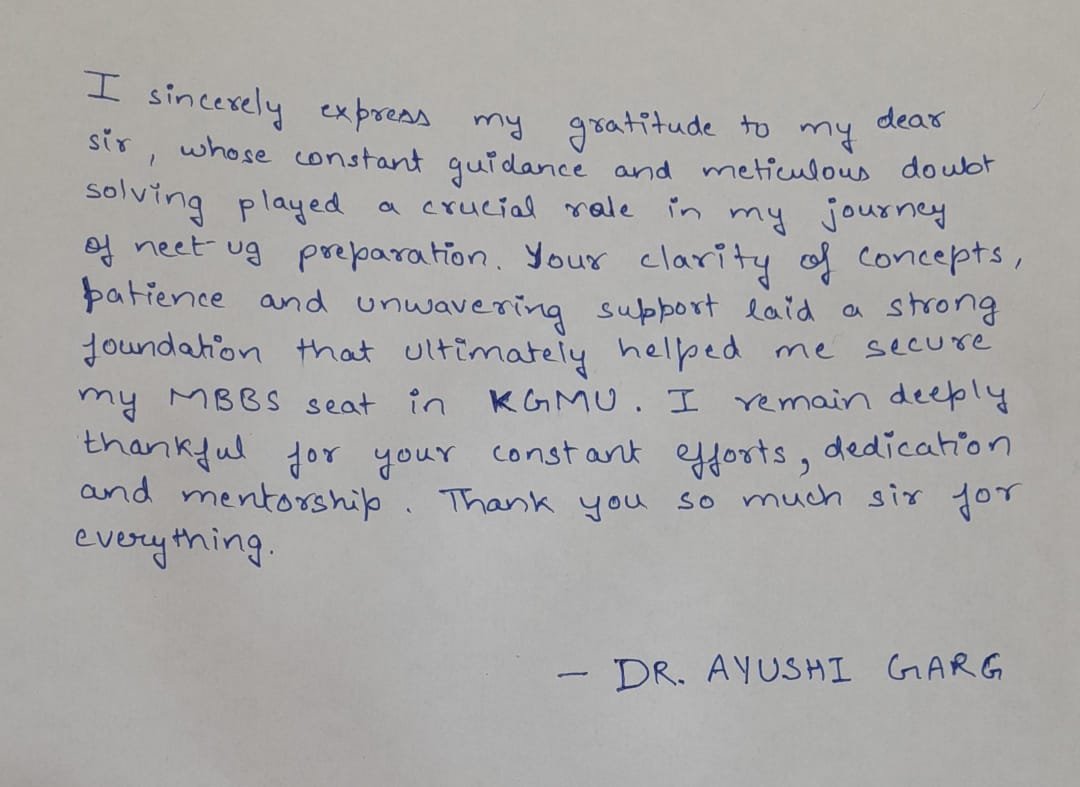 I sincerely express my gratitude to my dear
sir, whose constant guidance and meticulous doubt
solving played a crucial role in my journey
of neet-ug preparation. Your clarity of concepts,
patience and unwavering support laid a strong
foundation that ultimately helped me secure
my MBBS seat in KGMU. I remain deeply
thankful for your constant efforts, dedication
and mentorship. Thank you so much sir for
everything.
- DR. AYUSHI GARG